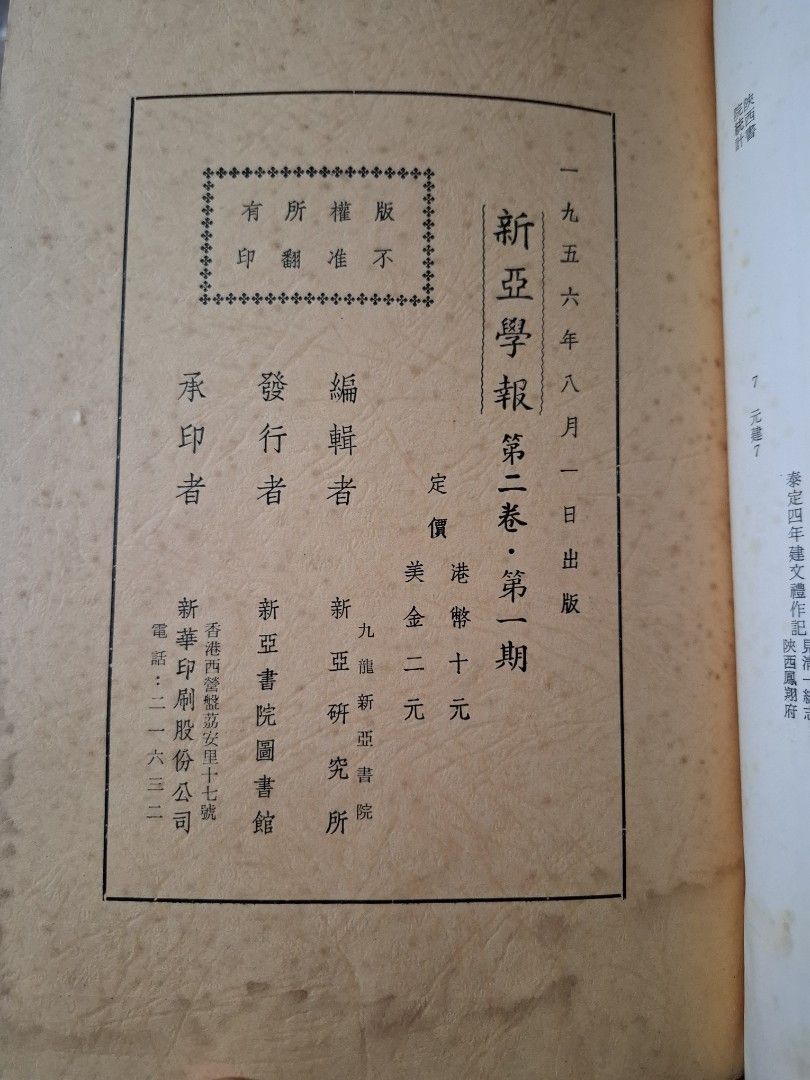 一九五六年八月一日出版
新亞學報 第二卷·第一期
定價
港幣十元
美金二元
編輯者
九龍新亞書院
新亞研究所
發行者
新亞書院圖書館
承印者
香港西營盤荔安里十七號
新華印刷股份公司
電話：二一六三二
版權所有
不准翻印
陝西書
院統計
7 元建7
泰定四年建文禮作記
陝西鳳翔府